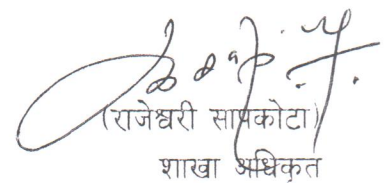 (राजेश्वरी सापकोटा)
शाखा अधिकृत